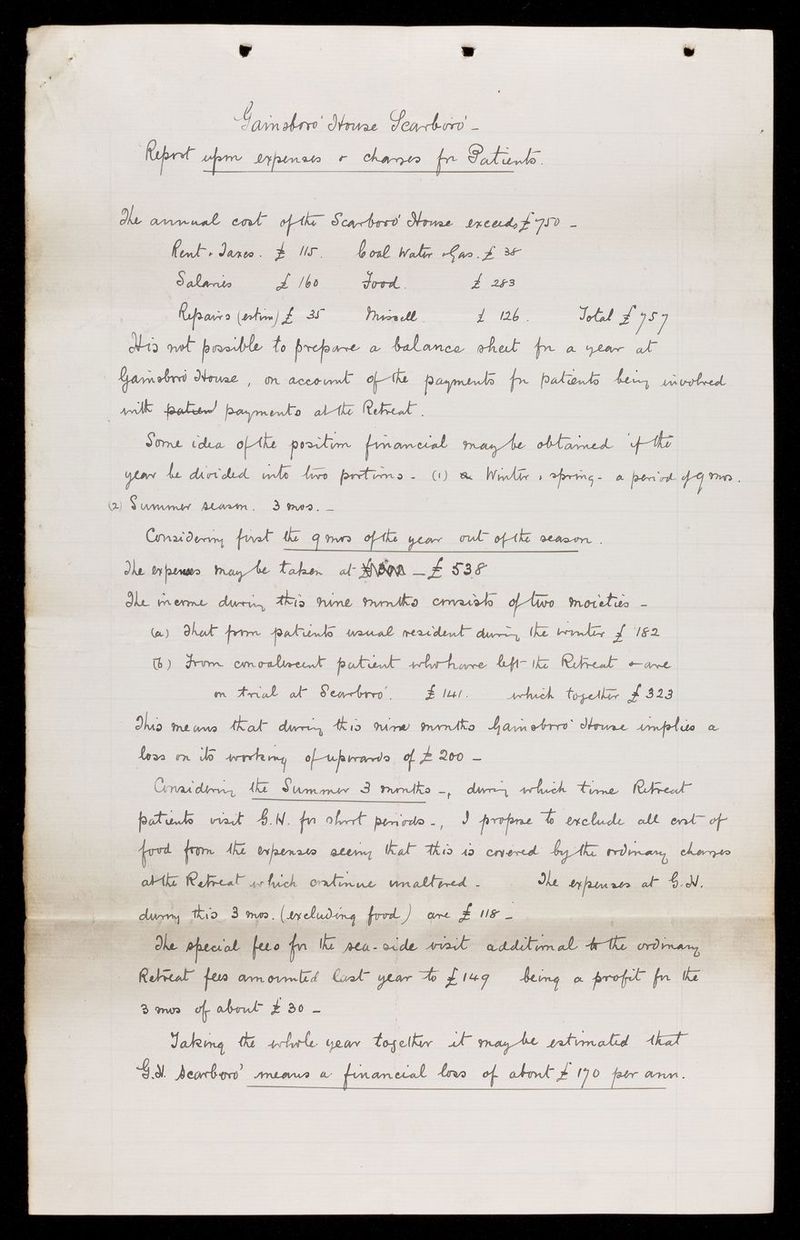 Gainsboro' House Scarboro' -
Report upon expenses & charges for Patients.
The annual cost of the Scarboro' House exceeds £750 -
Rent & Taxes. £ 115. Coal Water & Gas. £ 38
Salaries £ 160 Food £ 283
Repairs (estim) £ 35 Miscell £ 126. Total £757
It is not possible to prepare a balance sheet for a year at
Gainsbro' House, on account of the payments for patients being involved
with patien' payments at the Retreat.
Some idea of the position financial may be obtained if the
year be divided into two portions - (1) Winter & spring - a period of 9 mos.
(2) Summer season. 3 mos. -
Considering first the 9 mos of the year out of the season.
The expenses may be taken at - £ 538
The income during this nine months consists of two moieties -
(a) That from patients usual resident during the winter £ 182
(b) From convalescent patient who have left the Retreat & are
on trial at Scarboro'. £ 141. which together £ 323
This means that during this nine months Gainsboro' House implies a
loss on its working of upwards of £ 200 -
Considering the Summer 3 months -, during which time Retreat
patients visit G.H. for short periods -, I propose to exclude all cost of
food from the expenses seeing that this is covered by the ordinary charges
at the Retreat which continue unaltered - The expenses at G.H.
during this 3 mos. (excluding food) are £ 118 -
The special fees for the sea-side visit additional to the ordinary
Retreat fees amounted last year to £149 being a profit for the
3 mos of about £ 30 -
Taking the whole year together it may be estimated that
G.H. Scarboro' means a financial loss of about £ 170 per ann.